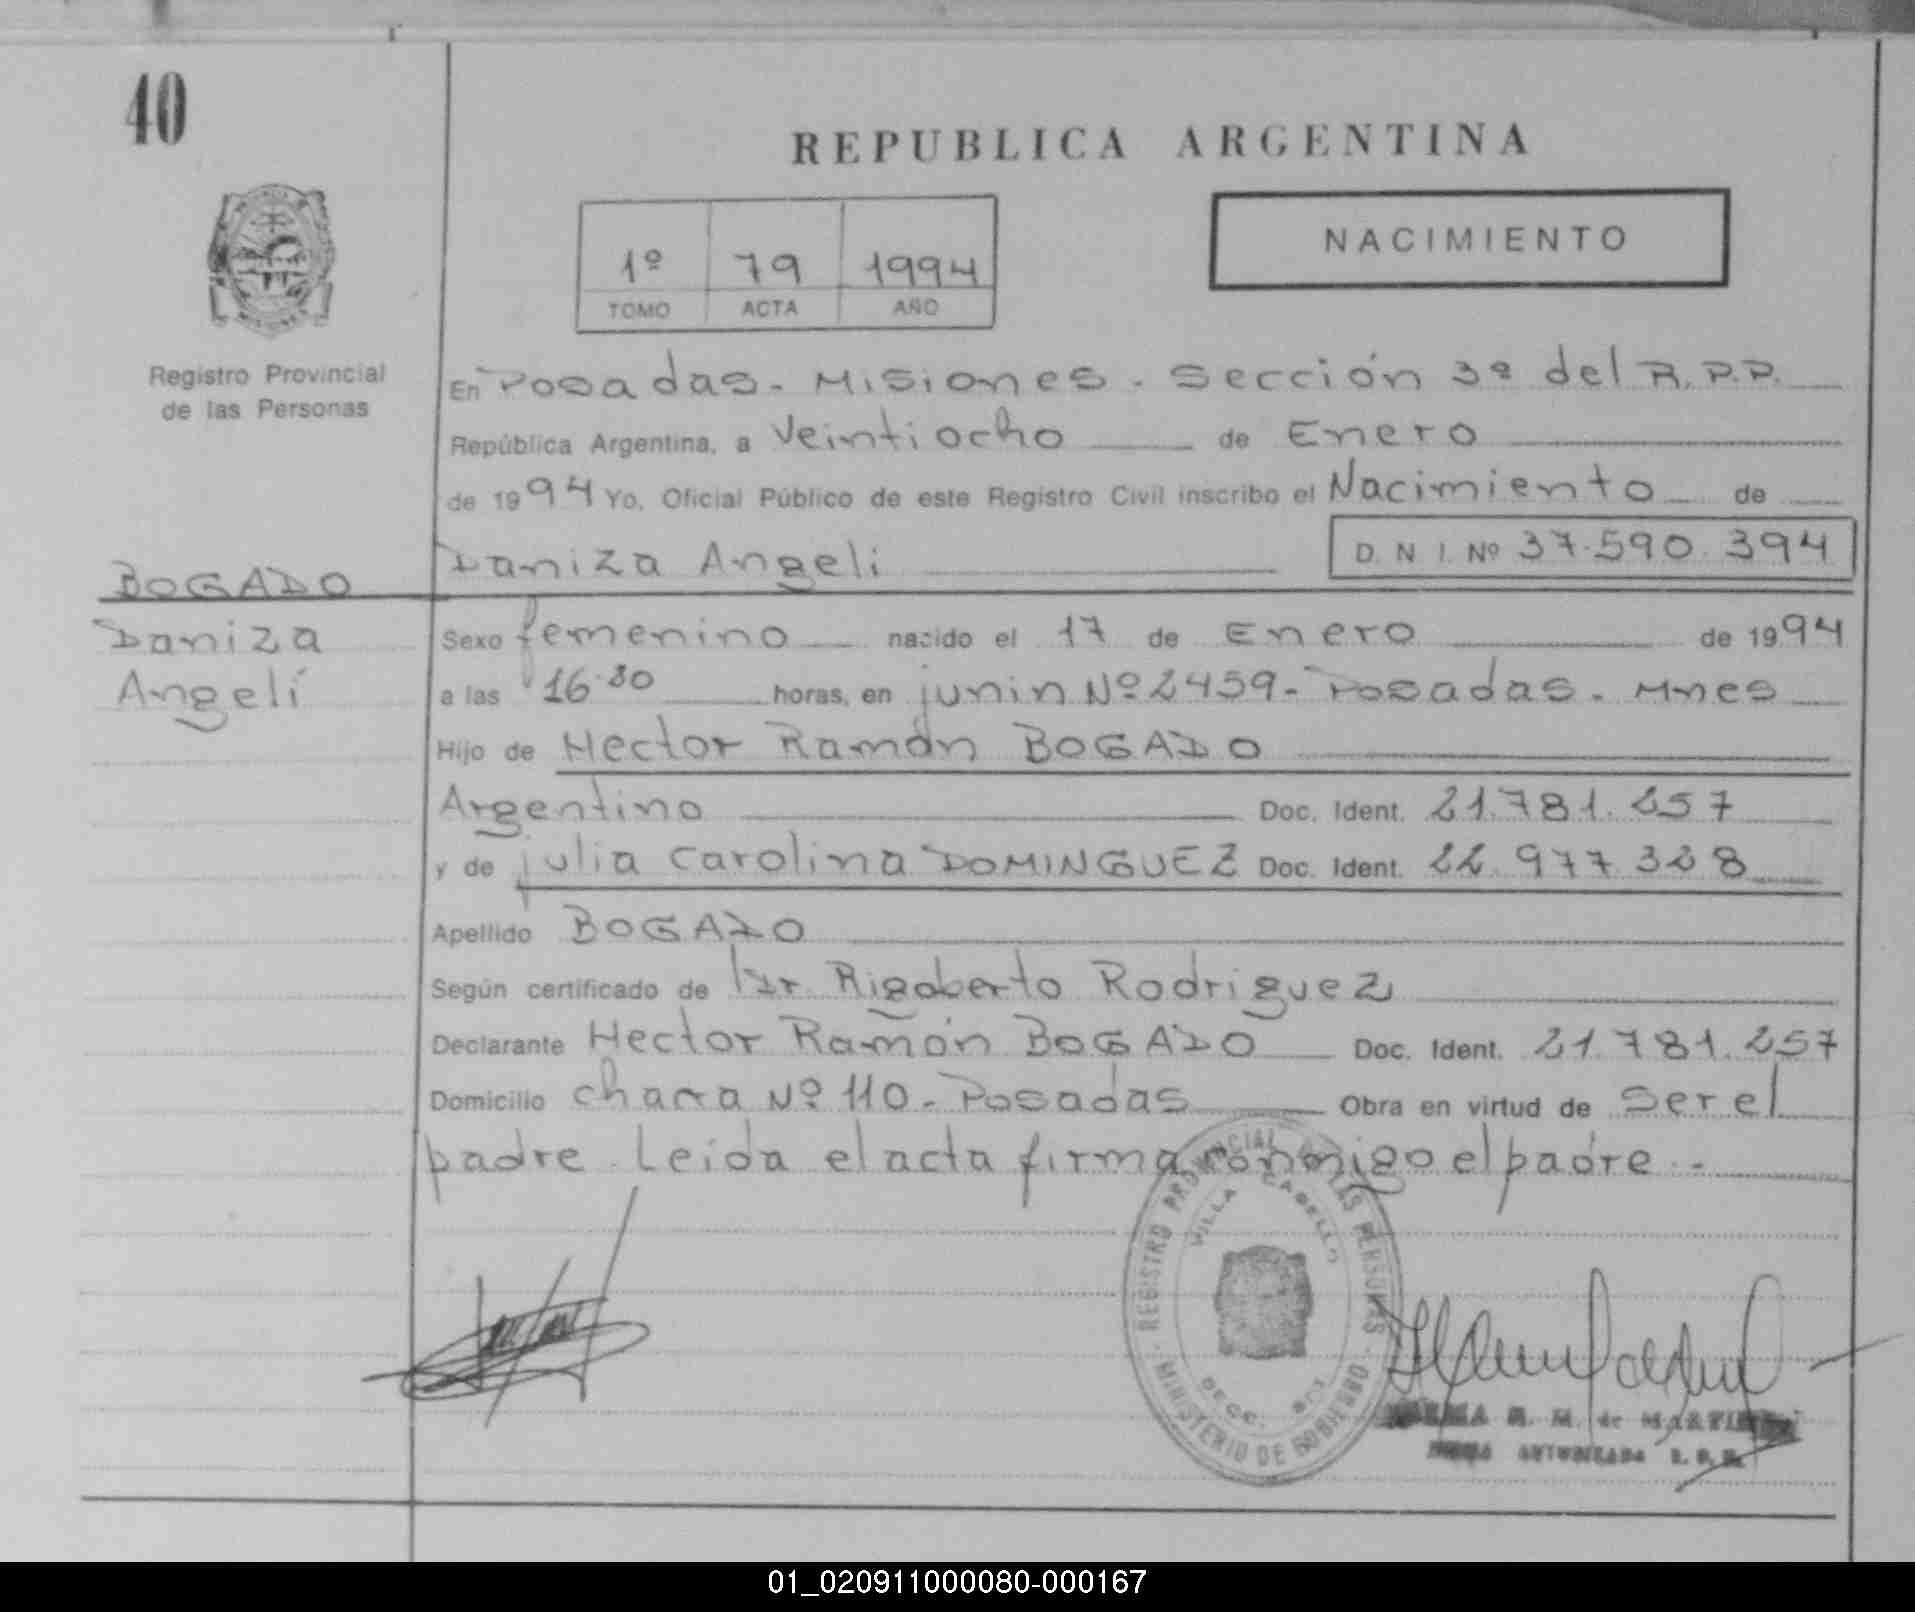 40
REPUBLICA ARGENTINA
NACIMIENTO
1º 79 1994
TOMO ACTA AÑO
Registro Provincial
de las Personas
En Posadas - Misiones - Sección 3ª del R.P.P.
República Argentina, a Veintiocho de Enero
de 1994 Yo, Oficial Público de este Registro Civil inscribo el Nacimiento de
Daniza Angeli D. N. I. Nº 37.590.394
BOGADO
Daniza
Angelí
Sexo femenino nacido el 17 de Enero de 1994
a las 16.30 horas, en junin Nº 2459 - Posadas - Mnes
Hijo de Hector Ramón BOGADO
Argentino Doc. Ident. 21.781.257
y de julia Carolina DOMINGUEZ Doc. Ident. 22.977.328
Apellido BOGADO
Según certificado de Dr Rigoberto Rodriguez
Declarante Hector Ramón BOGADO Doc. Ident. 21.781.257
Domicilio chacra Nº 110 - Posadas Obra en virtud de Ser el
padre. Leida el acta firma conmigo el padre.-
REGISTRO PROVINCIAL DE LAS PERSONAS
VILLA CABELLO
SECC.
MINISTERIO DE GOBIERNO
M. de
AUTORIZADA
01_020911000080-000167